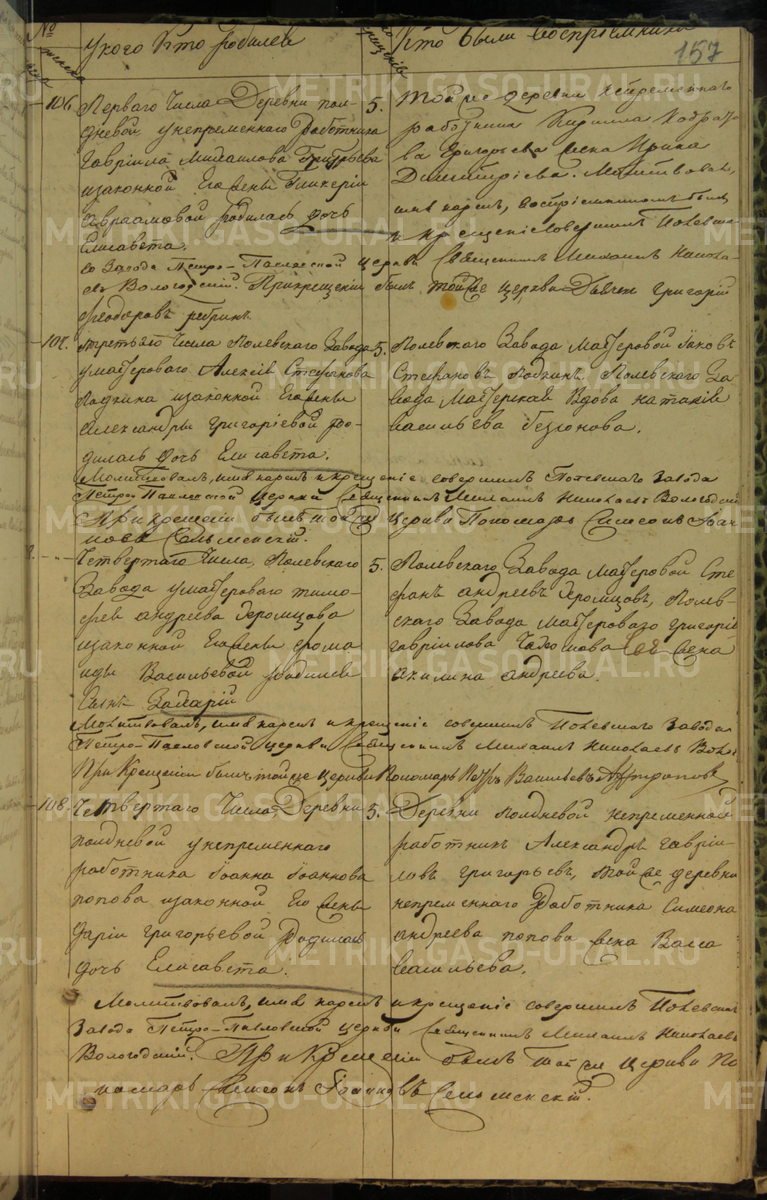 №
У кого Кто родился
Кто были восприемники
157
106.
Перваго числа Деревни Пол-
дневой у непременнаго работника
Гавріила Михаилова Григорьева
и законной Его жены Гликеріи
Авраамовой родилась дочь
Елисавета.
5.
Той же деревни непременнаго
работника Кирилла
Григорьева жена Ирина
Димитріева. Молитвовалъ,
имя нарекъ,
и крещеніе совершилъ Полевска-
го Завода Петро-Павловской церкви Священникъ Михаилъ Никола-
евъ Вологодскій. При крещеніи былъ той же церкви Дьячек Григорій
Феодоровъ
107.
Третьяго числа Полевскаго Завода
у мастероваго Алексія Стефанова
и законной Его жены
Александры Григоріевой ро-
дилась дочь Елисавета.
5.
Полевскаго Завода Мастеровой Іяковъ
Стефановъ Полевскаго За-
вода Мастерская Вдова Наталія
Васильева
Молитвовалъ, имя нарекъ и крещеніе совершилъ Полевскаго Завода
Петро-Павловской церкви Священникъ Михаилъ Николаевъ Вологодскій
При крещеніи былъ той же церкви Пономарь Симеонъ Іоан-
новъ Сельменскій.
Четвертаго числа, Полевскаго
Завода у мастероваго Тимо-
фея Андреева
и законной Его жены
Васильевой родился
Сынъ Захарій
5.
Полевскаго Завода Мастеровой Сте-
фанъ Андреевъ Полев-
скаго Завода Мастероваго Григорія
Гавріилова жена
Акилина Андреева.
Молитвовалъ, имя нарекъ и крещеніе совершилъ Полевскаго Завода
Петро-Павловской церкви Священникъ Михаилъ Николаевъ
При Крещеніи былъ той же церкви Пономарь Петръ Васильевъ
108.
Четвертаго Числа, Деревни
Полдневой у непременнаго
работника Іоанна Іоаннова
Попова и законной Его жены
Даріи Григорьевой Родилась
дочь Елисавета.
5.
Деревни Полдневой непременной
работникъ Александръ Гавріи-
ловъ Григорьевъ, той же деревни
непременнаго Работника Симеона
Андреева Попова жена Васса
Васильева.
Молитвовалъ, имя нарекъ и крещеніе совершилъ Полевскаго
Завода Петро-Павловской церкви Священникъ Михаилъ Николаевъ
Вологодскій. При Крещеніи былъ той же церкви По-
номарь Симеонъ Іоанновъ Сельменскій.
METRIKI.GASO-URAL.RU